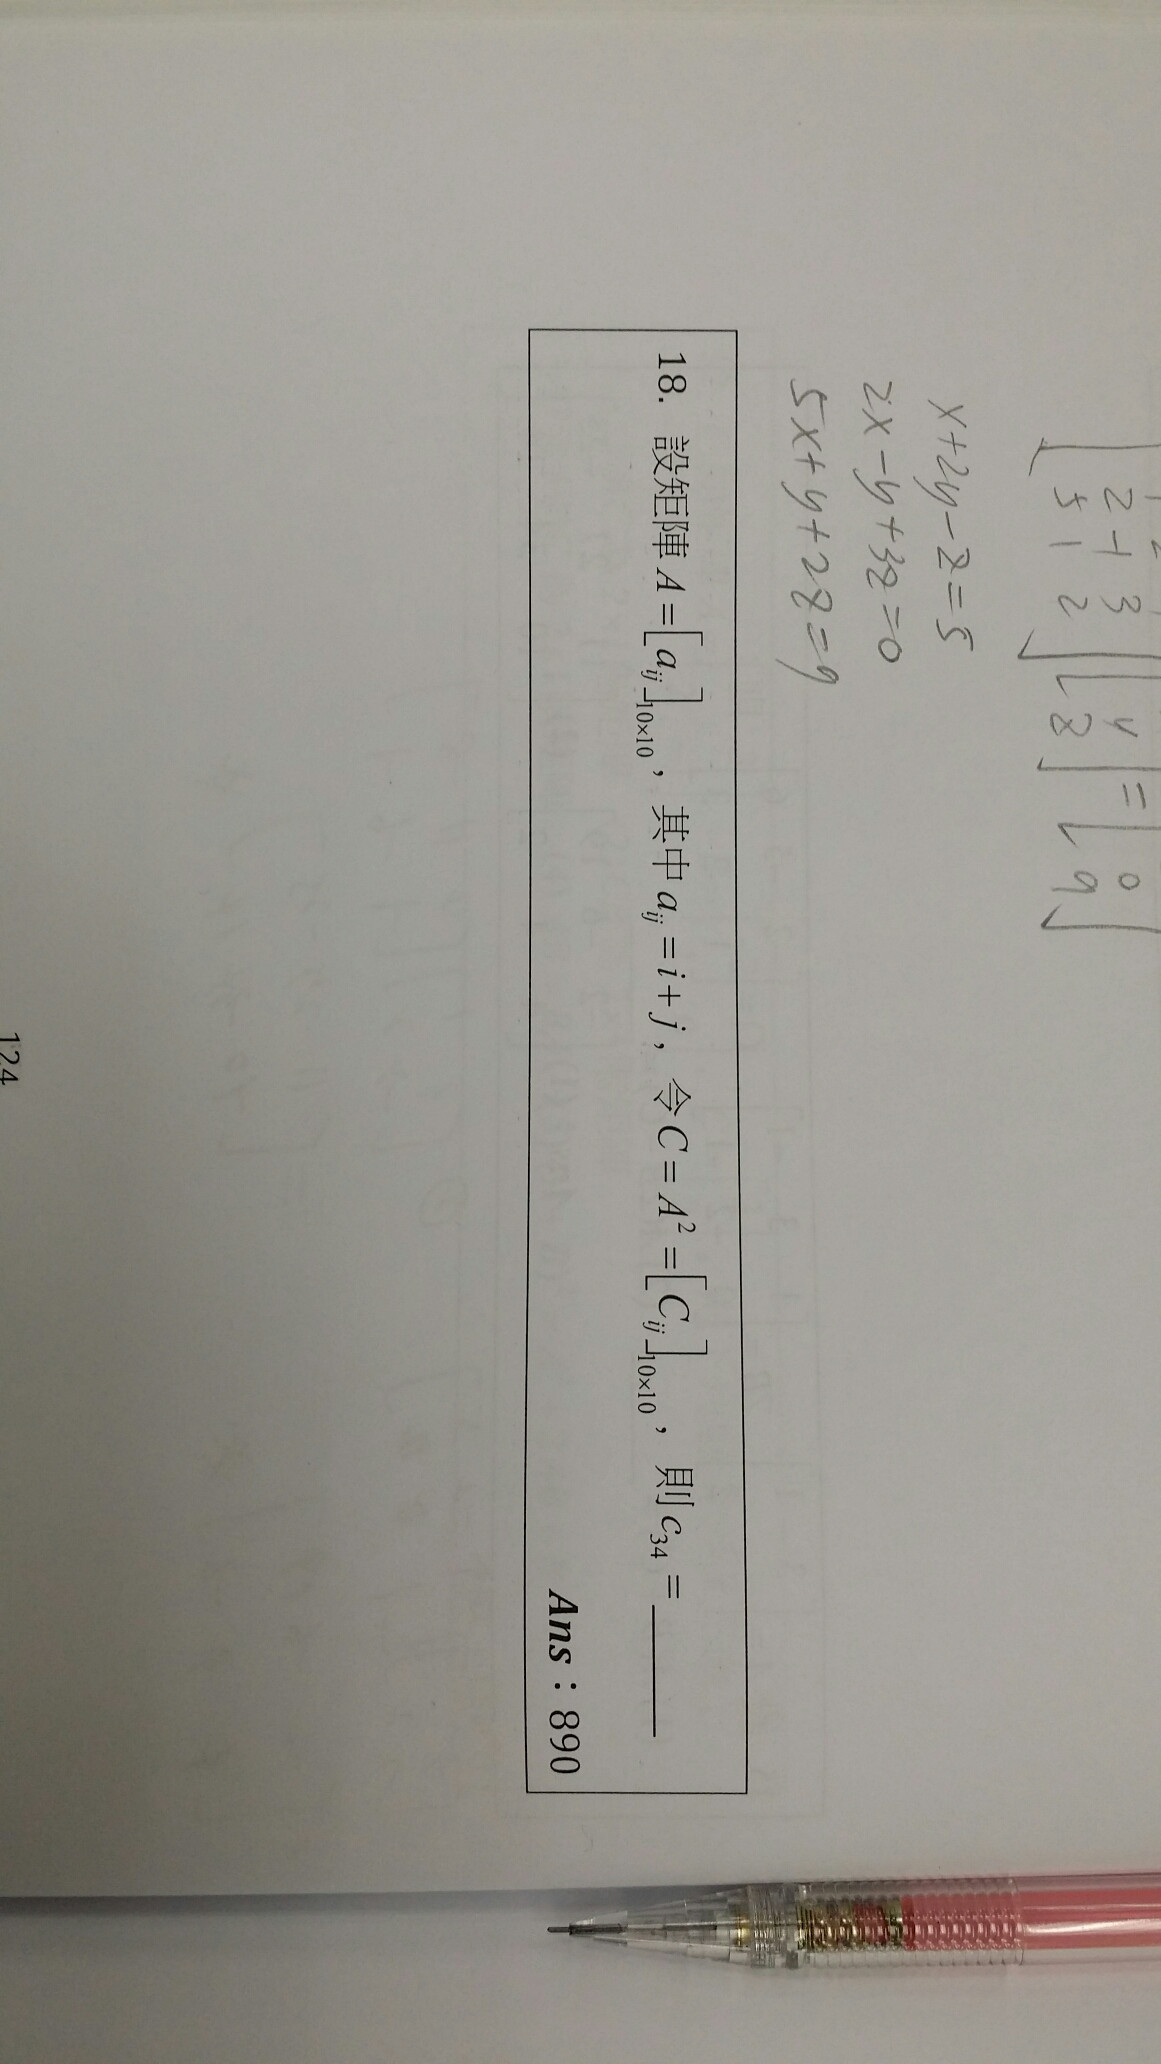 2 -1 3 y = 0
5 1 2 z 9
x+2y-z=5
2x-y+3z=0
5x+y+2z=9
18. 設矩陣 A=[a_{ij}]_{10×10}, 其中 a_{ij}=i+j, 令 C=A²=[C_{ij}]_{10×10}, 則 c_{34}=______
Ans：890
124